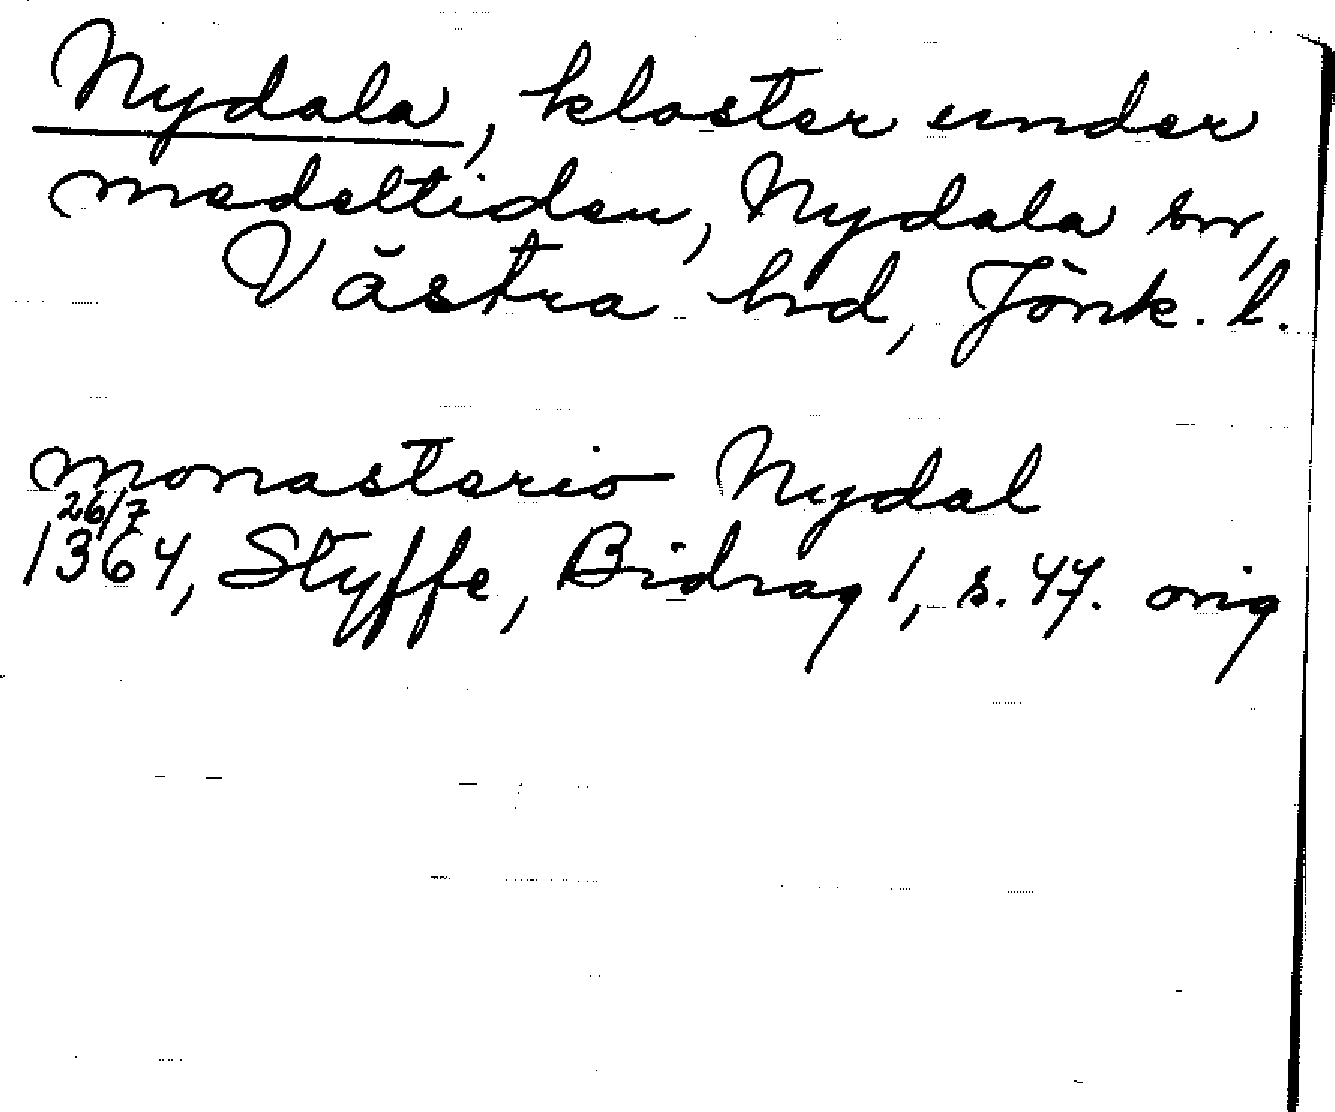 Nydala, kloster under
medeltiden, Nydala sn,
Västra hd, Jönk. l.
monasterio Nydal
26/7
1364, Styffe, Bidrag 1, s. 47. orig